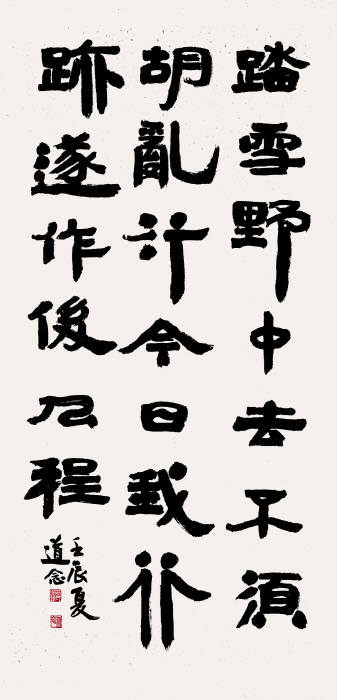 踏雪野中去不須
胡亂行今日我行
跡遂作後人程
壬辰夏
道念